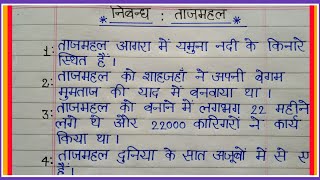 * निबन्ध : ताजमहल *
1: ताजमहल आगरा में यमुना नदी के किनारे
स्थित हैं ।
2: ताजमहल को शाहजहाँ ने अपनी बेगम
मुमताज की याद में बनवाया था ।
3: ताजमहल को बनाने में लगभग 22 महीने
लगे थे और 22000 कारिगरो ने कार्य
किया था ।
4: ताजमहल दुनिया के सात अजूबों में से
हैं ।